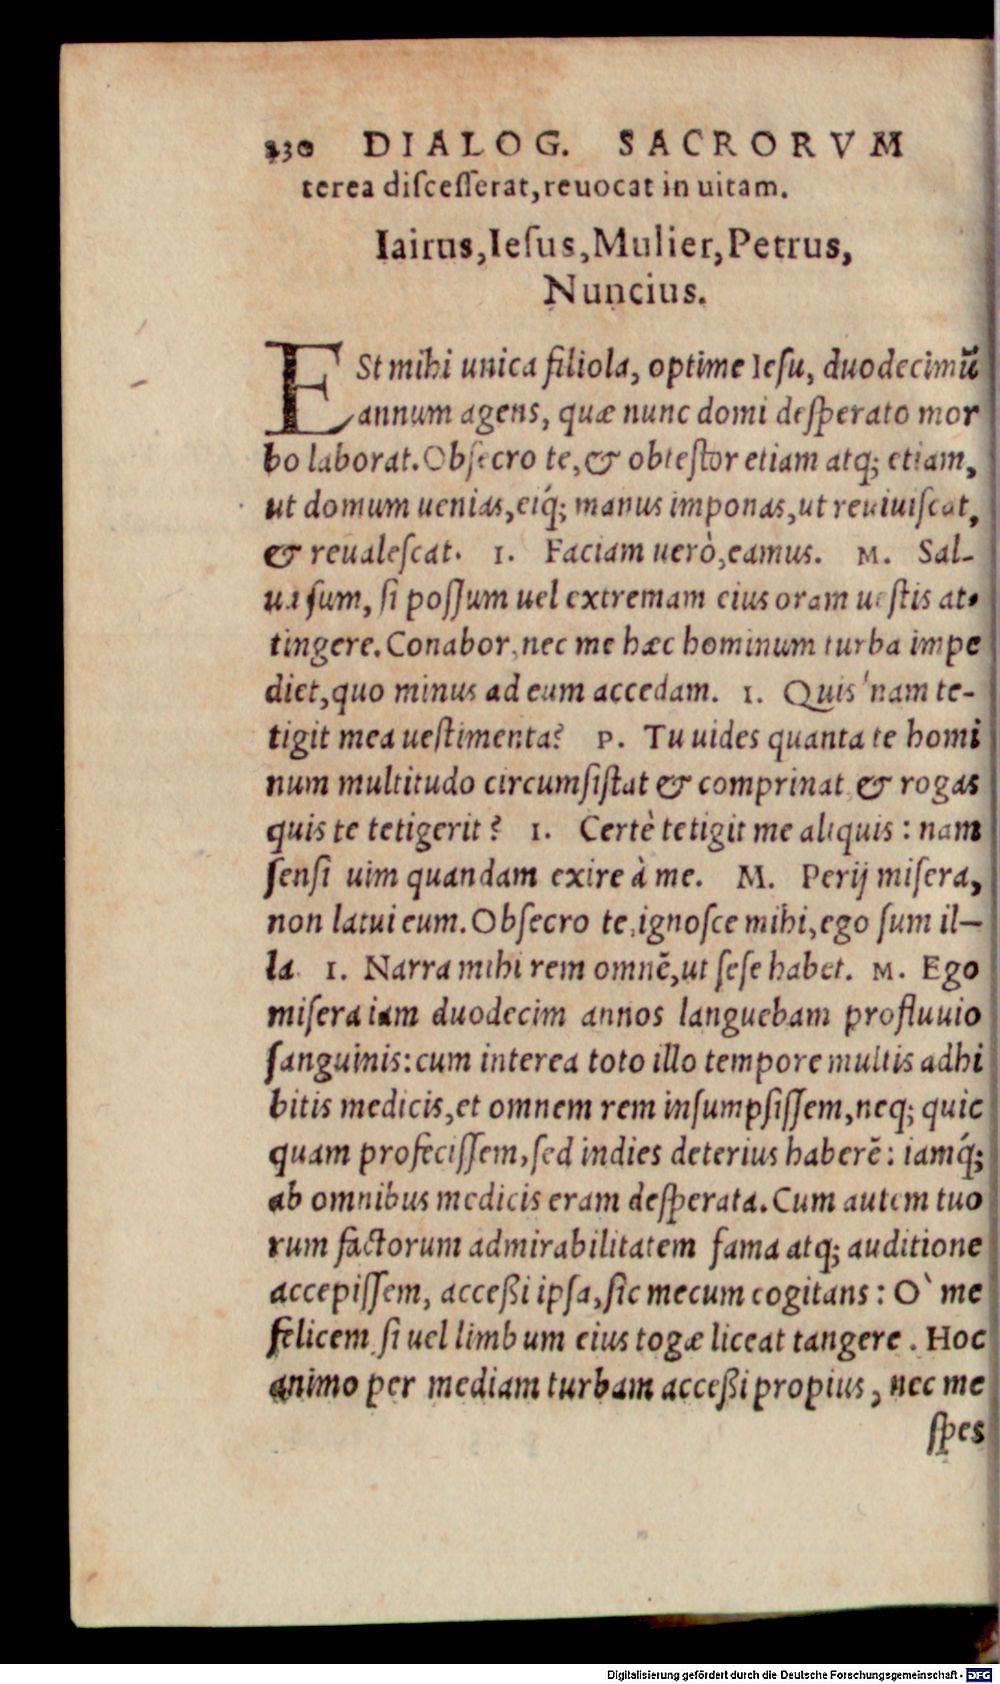 230 DIALOG. SACRORVM
terea diſceſſerat,reuocat in uitam.
Iairus,Ieſus,Mulier,Petrus,
Nuncius.
ESt mihi unica filiola, optime Ieſu, duodecimũ
annum agens, quæ nunc domi deſperato mor
bo laborat.Obſecro te,& obteſtor etiam atq; etiam,
ut domum uenias,eiq́; manus imponas,ut reuiuiſcat,
& reualeſcat. I. Faciam uerò,eamus. M. Sal-
ua ſum, ſi poſſum uel extremam eius oram ueſtis at-
tingere.Conabor,nec me hæc hominum turba impe
diet,quo minus ad eum accedam. I. Quis'nam te-
tigit mea ueſtimenta? P. Tu uides quanta te homi
num multitudo circumſiſtat & comprinat & rogas
quis te tetigerit? I. Certè tetigit me aliquis: nam
ſenſi uim quandam exire à me. M. Perij miſera,
non latui eum.Obſecro te,ignoſce mihi,ego ſum il-
la. I. Narra mihi rem omnẽ,ut ſeſe habet. M. Ego
miſera iam duodecim annos languebam profluuio
ſanguinis:cum interea toto illo tempore multis adhi
bitis medicis,et omnem rem inſumpſiſſem,neq; quic
quam profeciſſem,ſed indies deterius haberẽ: iamq́;
ab omnibus medicis eram deſperata.Cum autem tuo
rum factorum admirabilitatem fama atq; auditione
accepiſſem, acceßi ipſa,ſic mecum cogitans: O` me
felicem ſi uel limbum eius togæ liceat tangere. Hoc
animo per mediam turbam acceßi propius, nec me
ſpes
Digitalisierung gefördert durch die Deutsche Forschungsgemeinschaft - DFG